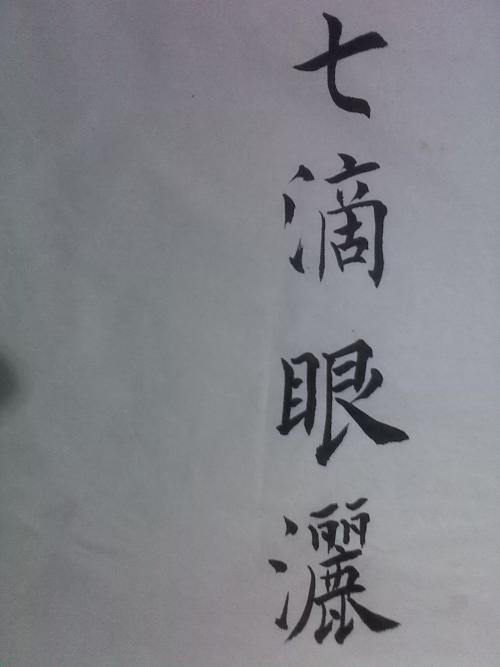 七滴眼灑